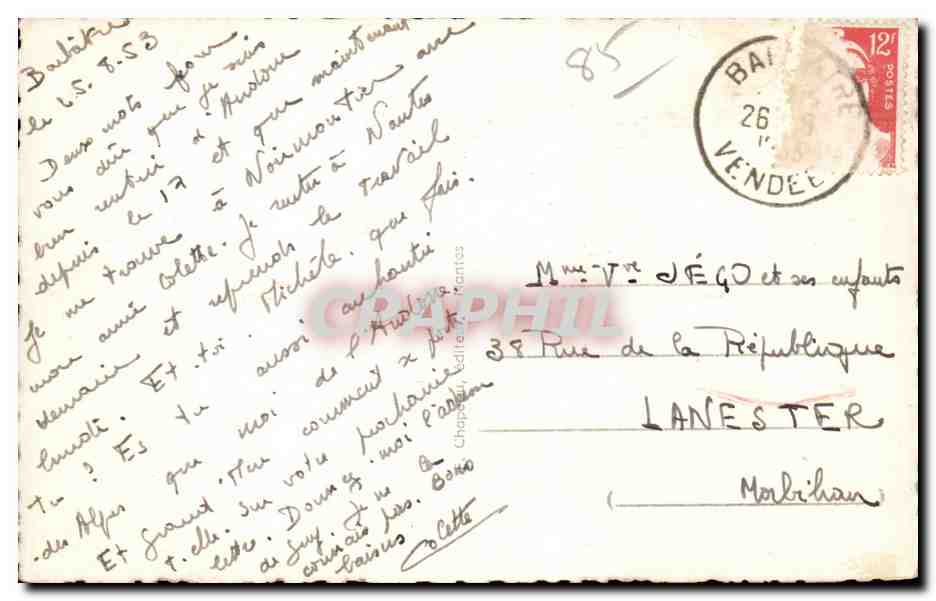 Barbâtre
le 25.8.53
Deux mots pour
vous dire que je suis
bien rentrée d'Andorre
depuis le 17 et que maintenant
je me trouve à Noirmoutier avec
mon amie Colette. Je rentre à Nantes
demain et reprends le travail
lundi. Et toi Michèle. que fais.
tu ? Es tu aussi enchantée
des Alpes que moi de l'Andorre.
Et Grand. Mère comment se porte
t. elle. Sur votre prochaine
lettre. Donnez. moi l'adresse
de Guy je ne la
connais pas. Bons
baisers Colette
85
12F
POSTES
BARBATRE
26
VENDEE
Chapeau, éditeur, Nantes
CPAPHIL
Mme Vve JÉGO et ses enfants
38 Rue de la République
LANESTER
(Morbihan)